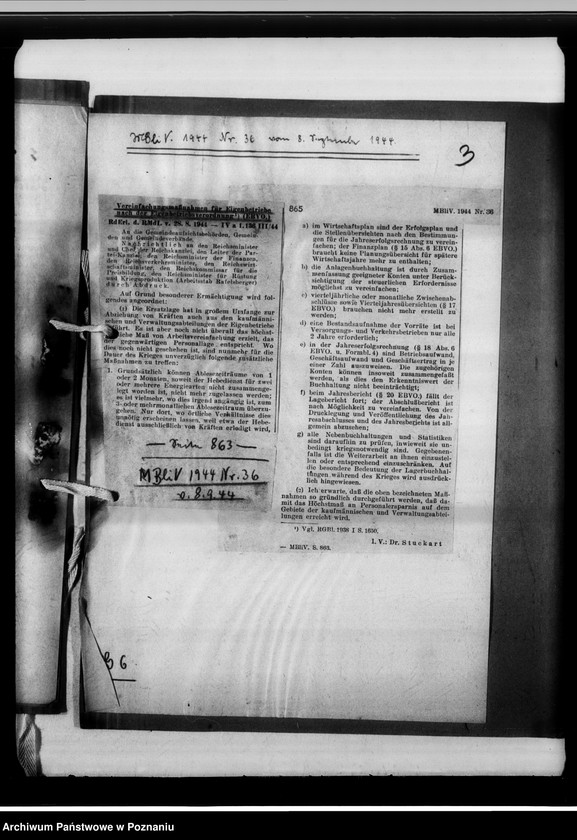 MBliV. 1944 Nr. 36 vom 8. September 1944
3
Vereinfachungsmaßnahmen für Eigenbetriebe
nach der Eigenbetriebsverordnung¹) (EBVO.)
RdErl. d. RMdI. v. 28. 8. 1944 — IV a I. 156 III/44
An die Gemeindeaufsichtsbehörden, Gemein-
den und Gemeindeverbände.
Nachrichtlich an den Reichsminister
und Chef der Reichskanzlei, den Leiter der Par-
tei-Kanzlei, den Reichsminister der Finanzen,
den Reichsverkehrsminister, den Reichswirt-
schaftsminister, den Reichskommissar für die
Preisbildung, den Reichsminister für Rüstung
und Kriegsproduktion (Arbeitsstab Rafelsberger)
durch Abdruck.
Auf Grund besonderer Ermächtigung wird fol-
gendes angeordnet:
(1) Die Ersatzlage hat in großem Umfange zur
Abziehung von Kräften auch aus den kaufmänni-
schen und Verwaltungsabteilungen der Eigenbetriebe
geführt. Es ist aber noch nicht überall das höchst-
mögliche Maß von Arbeitsvereinfachung erzielt, das
der gegenwärtigen Personallage entspricht. Wo
dies noch nicht geschehen ist, sind nunmehr für die
Dauer des Krieges unverzüglich folgende zusätzliche
Maßnahmen zu treffen:
1. Grundsätzlich können Ablesezeiträume von 1
oder 2 Monaten, soweit der Hebedienst für zwei
oder mehrere Energiearten nicht zusammenge-
legt worden ist, nicht mehr zugelassen werden;
es ist vielmehr, wo dies irgend angängig ist, zum
3- oder mehrmonatlichen Ablesezeitraum überzu-
gehen. Nur dort, wo örtliche Verhältnisse dies
unnötig erscheinen lassen, weil etwa der Hebe-
dienst ausschließlich von Kräften erledigt wird,
— Seite 863 —
MBliV 1944 Nr. 36
v. 8.9.44
865
MBliV. 1944 Nr. 36
a) im Wirtschaftsplan sind der Erfolgsplan und
die Stellenübersichten nach den Bestimmun-
gen für die Jahreserfolgsrechnung zu verein-
fachen; der Finanzplan (§ 15 Abs. 6 EBVO.)
braucht keine Planungsübersicht für spätere
Wirtschaftsjahre mehr zu enthalten;
b) die Anlagenbuchhaltung ist durch Zusam-
menlassung geeigneter Konten unter Berück-
sichtigung der steuerlichen Erfordernisse
möglichst zu vereinfachen;
c) vierteljährliche oder monatliche Zwischenab-
schlüsse sowie Vierteljahresübersichten (§ 17
EBVO.) brauchen nicht mehr erstellt zu
werden;
d) eine Bestandsaufnahme der Vorräte ist bei
Versorgungs- und Verkehrsbetrieben nur alle
2 Jahre erforderlich;
e) in der Jahreserfolgsrechnung (§ 18 Abs. 6
EBVO. u. Formbl. 4) sind Betriebsaufwand,
Geschäftsaufwand und Geschäftsertrag in je
einer Zahl auszuweisen. Die zugehörigen
Konten können insoweit zusammengefaßt
werden, als dies den Erkenntniswert der
Buchhaltung nicht beeinträchtigt;
f) beim Jahresbericht (§ 20 EBVO.) fällt der
Lagebericht fort; der Abschlußbericht ist
nach Möglichkeit zu vereinfachen. Von der
Drucklegung und Veröffentlichung des Jah-
resabschlusses und des Jahresberichts ist all-
gemein abzusehen;
g) alle Nebenbuchhaltungen und Statistiken
sind daraufhin zu prüfen, inwieweit sie un-
bedingt kriegsnotwendig sind. Gegebenen-
falls ist die Weiterarbeit an ihnen einzustel-
len oder entsprechend einzuschränken. Auf
die besondere Bedeutung der Lagerbuchhal-
tungen während des Krieges wird ausdrück-
lich hingewiesen.
(2) Ich erwarte, daß die oben bezeichneten Maß-
nahmen so gründlich durchgeführt werden, daß da-
mit das Höchstmaß an Personalersparnis auf dem
Gebiete der kaufmännischen und Verwaltungsabtei-
lungen erreicht wird.
¹) Vgl. RGBl. 1938 I S. 1650.
I. V.: Dr. Stuckart
— MBliV. S. 863.
B 6
Archiwum Państwowe w Poznaniu